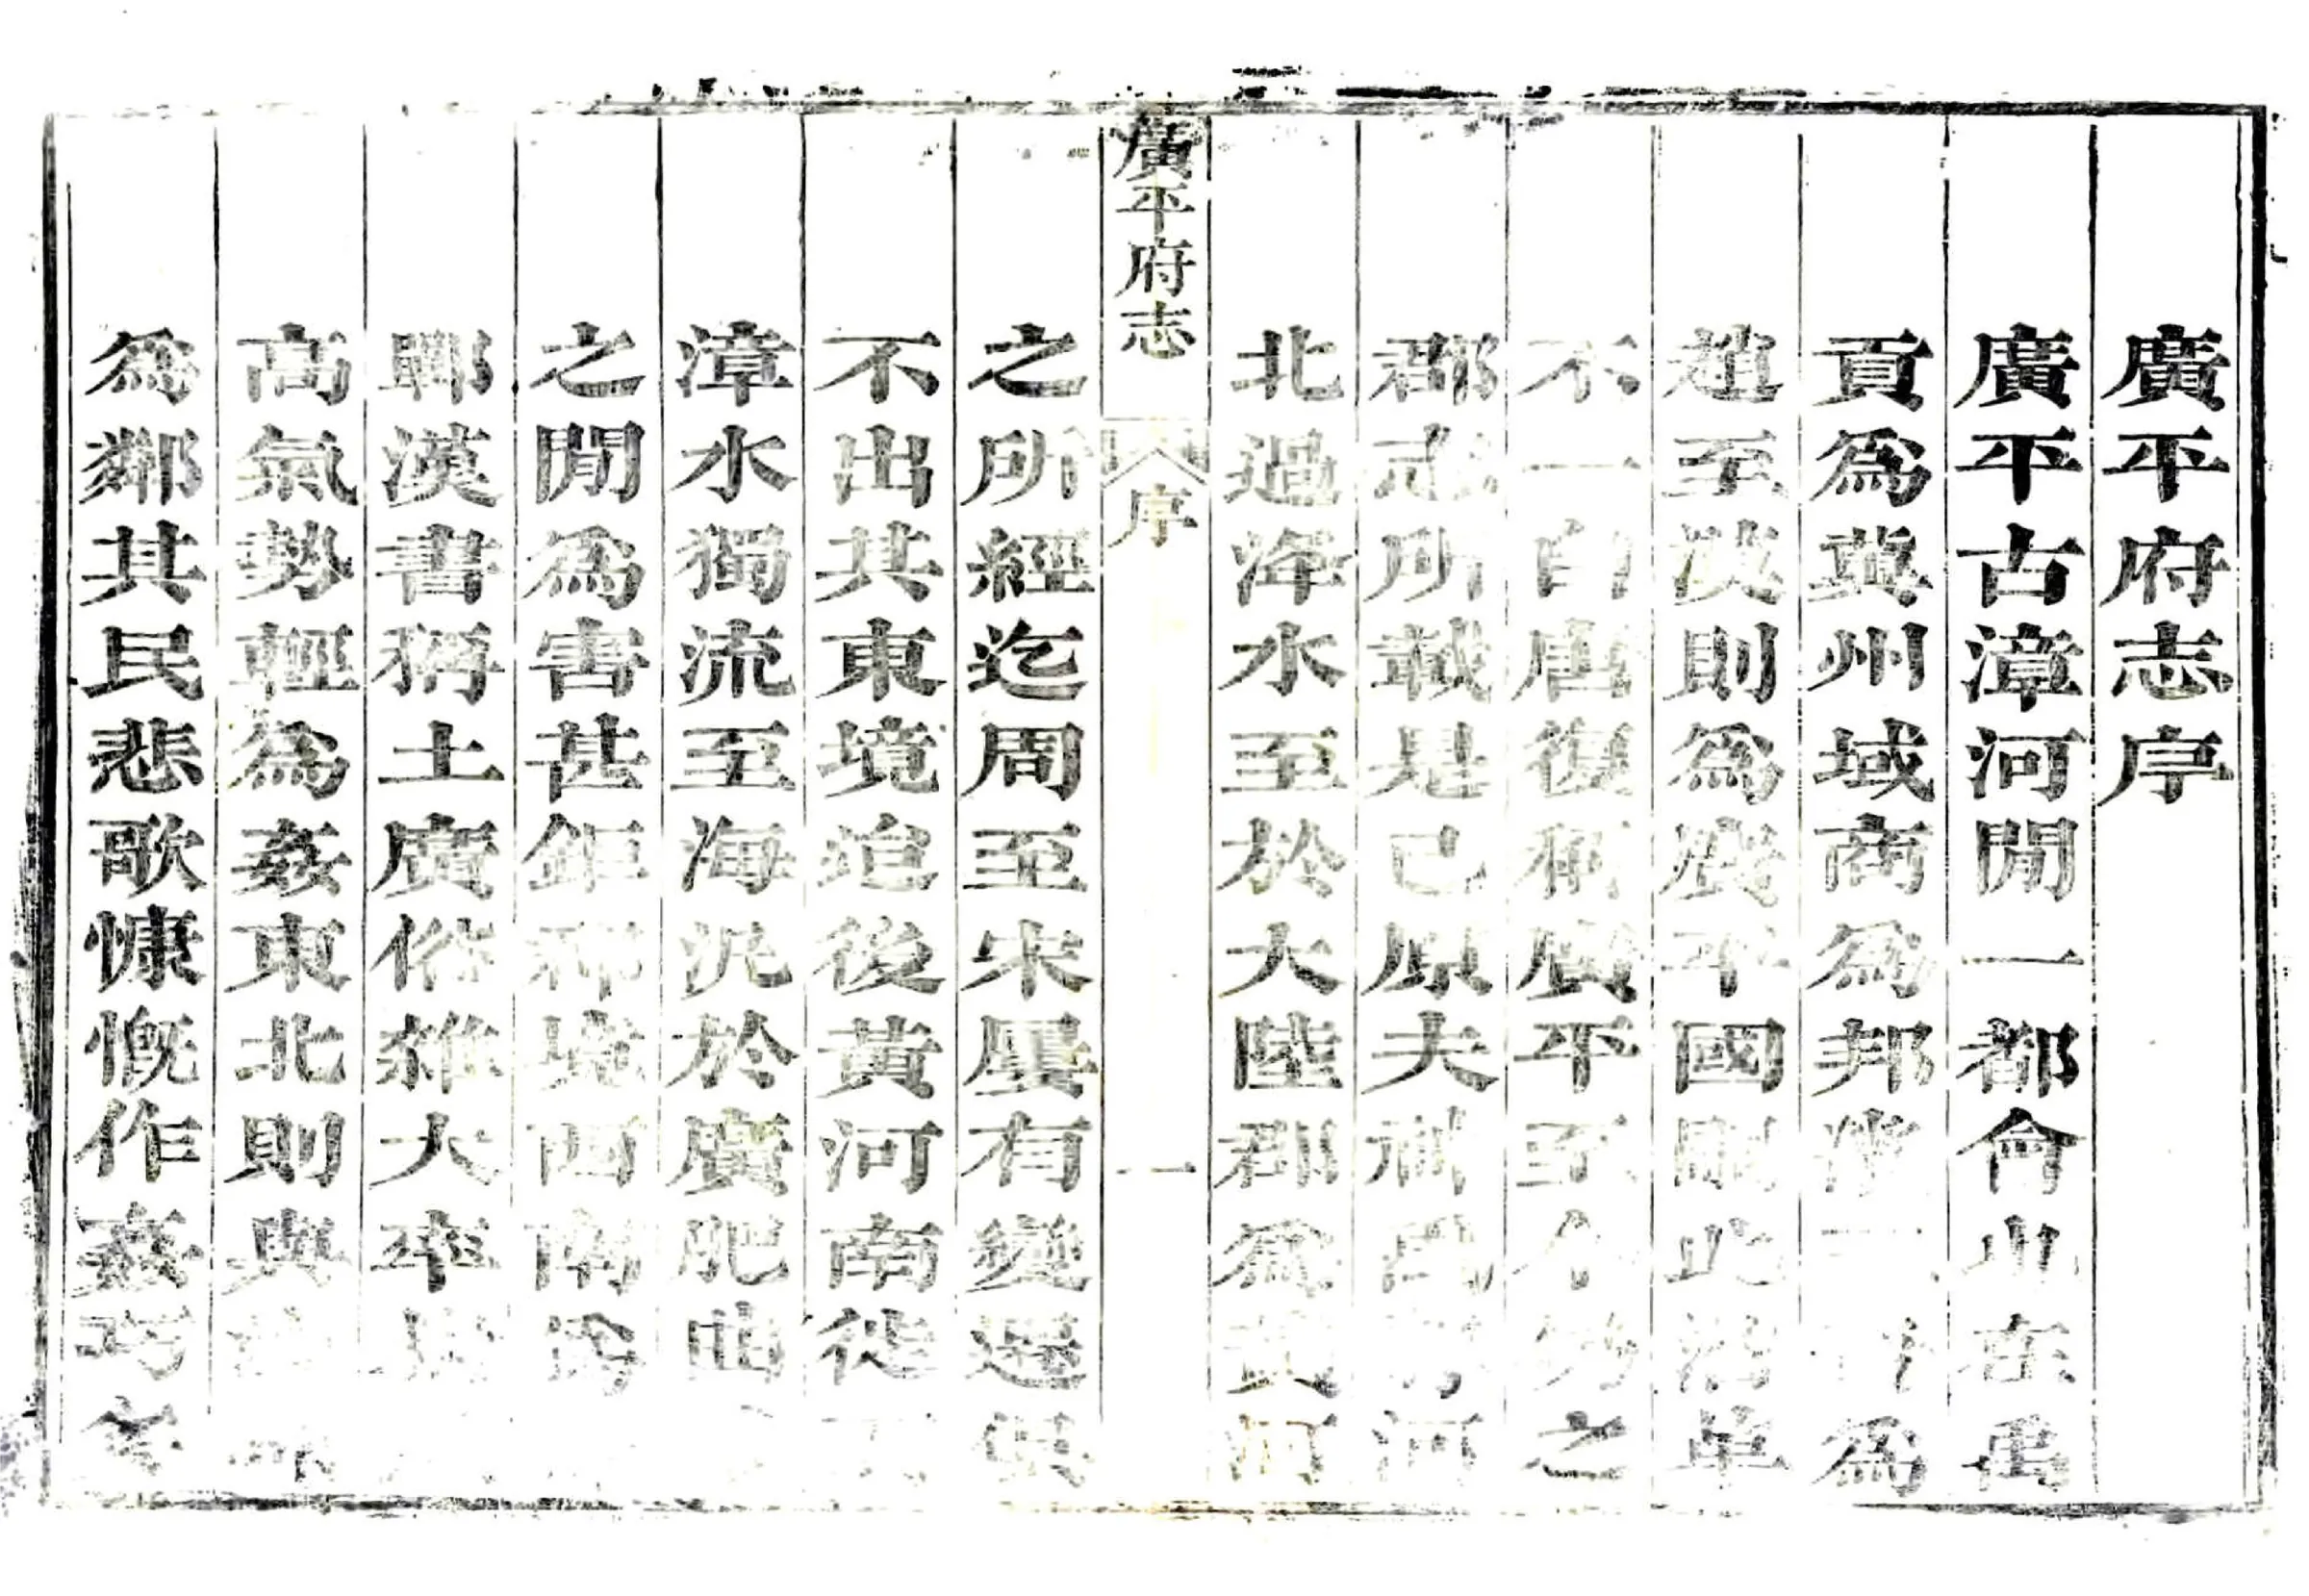 廣平府志序
廣平古漳河閒一都會山東禹
貢爲冀州域商爲邦爲
趙至漢則爲廣平國嗣此沿革
不一自唐復稱廣平至今仍之
郡志所載是已原夫河
北過洚水至於大陸郡爲河
廣平府志
序
一
之所經迄周至宋屢有變遷
不出其東境迨後黃河南徙
漳水獨流至海汎於廣肥曲
之閒爲害甚鉅郡境西南爲
鄲漢書稱土廣俗雜大率
高氣勢輕爲姦東北則與
爲鄰其民悲歌慷慨作姦巧